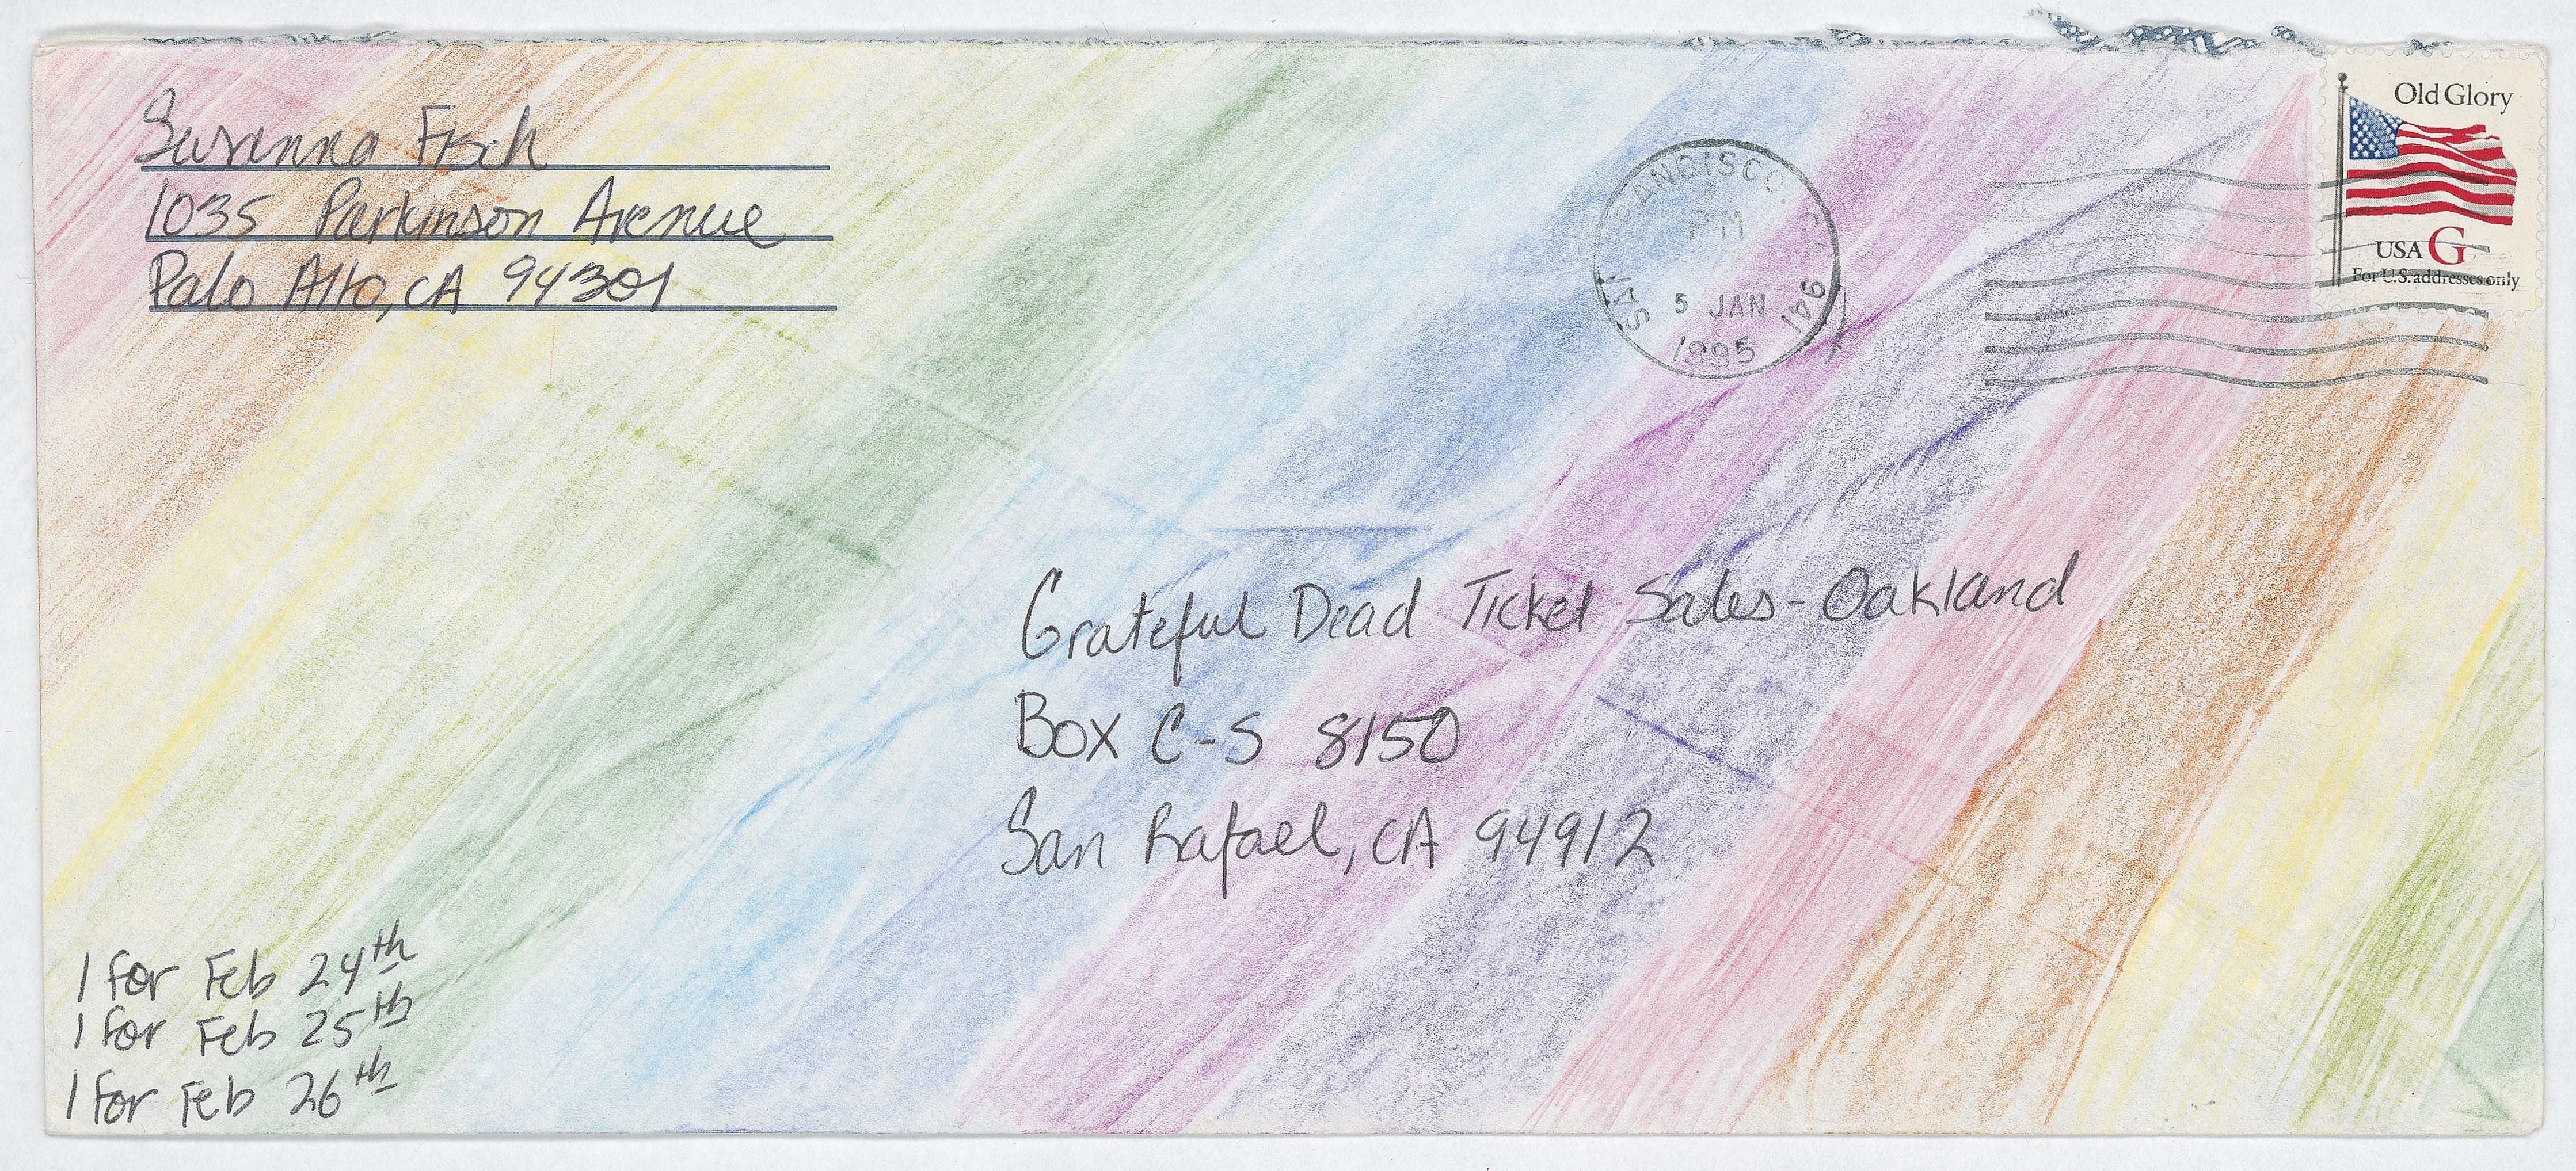 Susanna Fisch
1035 Parkinson Avenue
Palo Alto, CA 94301
SAN FRANCISCO, CA 941
PM
5 JAN
1995
Old Glory
USA G
For U.S. addresses only
Grateful Dead Ticket Sales - Oakland
Box C-S 8150
San Rafael, CA 94912
1 for Feb 24th
1 for Feb 25th
1 for Feb 26th